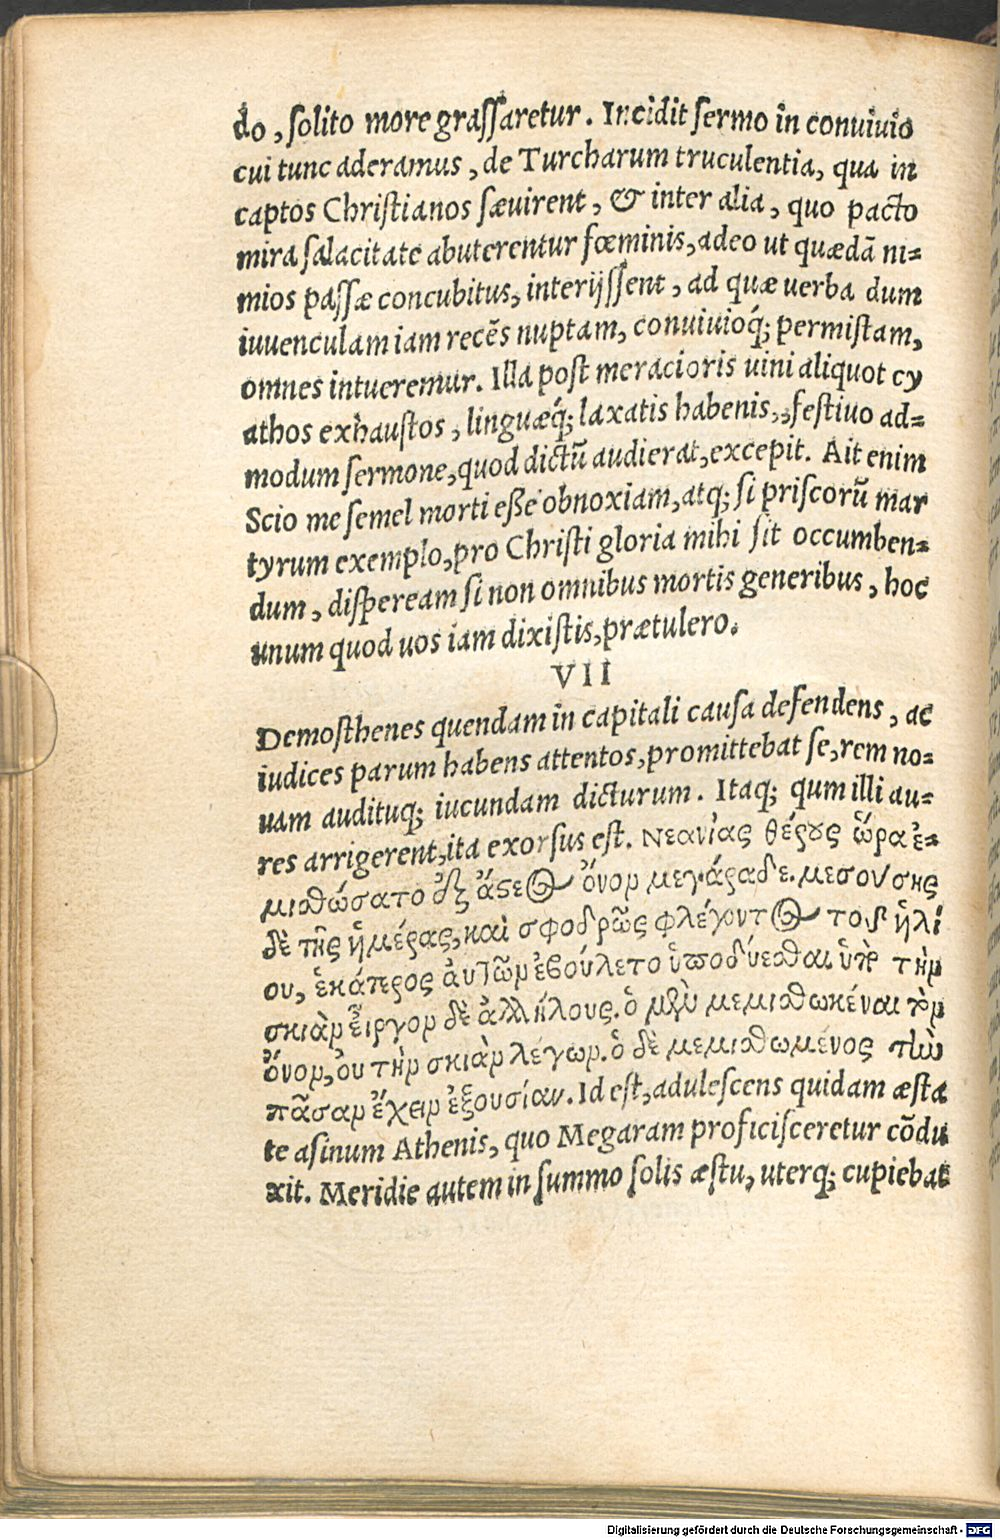 do, ſolito more graſſaretur. Incidit ſermo in conuiuio
cui tunc aderamus, de Turcharum truculentia, qua in
captos Chriſtianos ſæuirent, & inter alia, quo pacto
mira ſalacitate abuterentur fœminis, adeo ut quædã ni-
mios paſſæ concubitus, interijſſent, ad quæ uerba dum
iuuenculam iam recẽs nuptam, conuiuioq́; permiſtam,
omnes intueremur. Illa poſt meracioris uini aliquot cy
athos exhauſtos, linguæq́; laxatis habenis, feſtiuo ad-
modum ſermone, quod dictũ audierat, excepit. Ait enim
Scio me ſemel morti eſſe obnoxiam, atq; ſi priſcorũ mar
tyrum exemplo, pro Chriſti gloria mihi ſit occumben-
dum, diſpeream ſi non omnibus mortis generibus, hoc
unum quod uos iam dixiſtis, prætulero.
VII
Demoſthenes quendam in capitali cauſa defendens, ac
iudices parum habens attentos, promittebat ſe, rem no-
uam audituq; iucundam dicturum. Itaq; qum illi au-
res arrigerent, ita exorſus eſt. Νεανίας θέρους ὥρα ἐ-
μισθώσατο ἐξ ἄστεος ὄνον μεγάραδε. μεσούσης
δὲ τῆς ἡμέρας, καὶ σφοδρῶς φλέγοντος τοῦ ἡλί
ου, ἑκάτερος αὐτῶν ἐβούλετο ὑποδύεσθαι ὑπὸ τὴν
σκιὰν εἶργον δὲ ἀλλήλους. ὁ μὲν μεμισθωκέναι τὸν
ὄνον, οὐ τὴν σκιὰν λέγων. ὁ δὲ μεμισθωμένος τὴν
πᾶσαν ἔχειν ἐξουσίαν. Id eſt, aduleſcens quidam æſta
te aſinum Athenis, quo Megaram proficiſceretur cõdu
xit. Meridie autem in ſummo ſolis æſtu, uterq; cupiebat
Digitalisierung gefördert durch die Deutsche Forschungsgemeinschaft - DFG